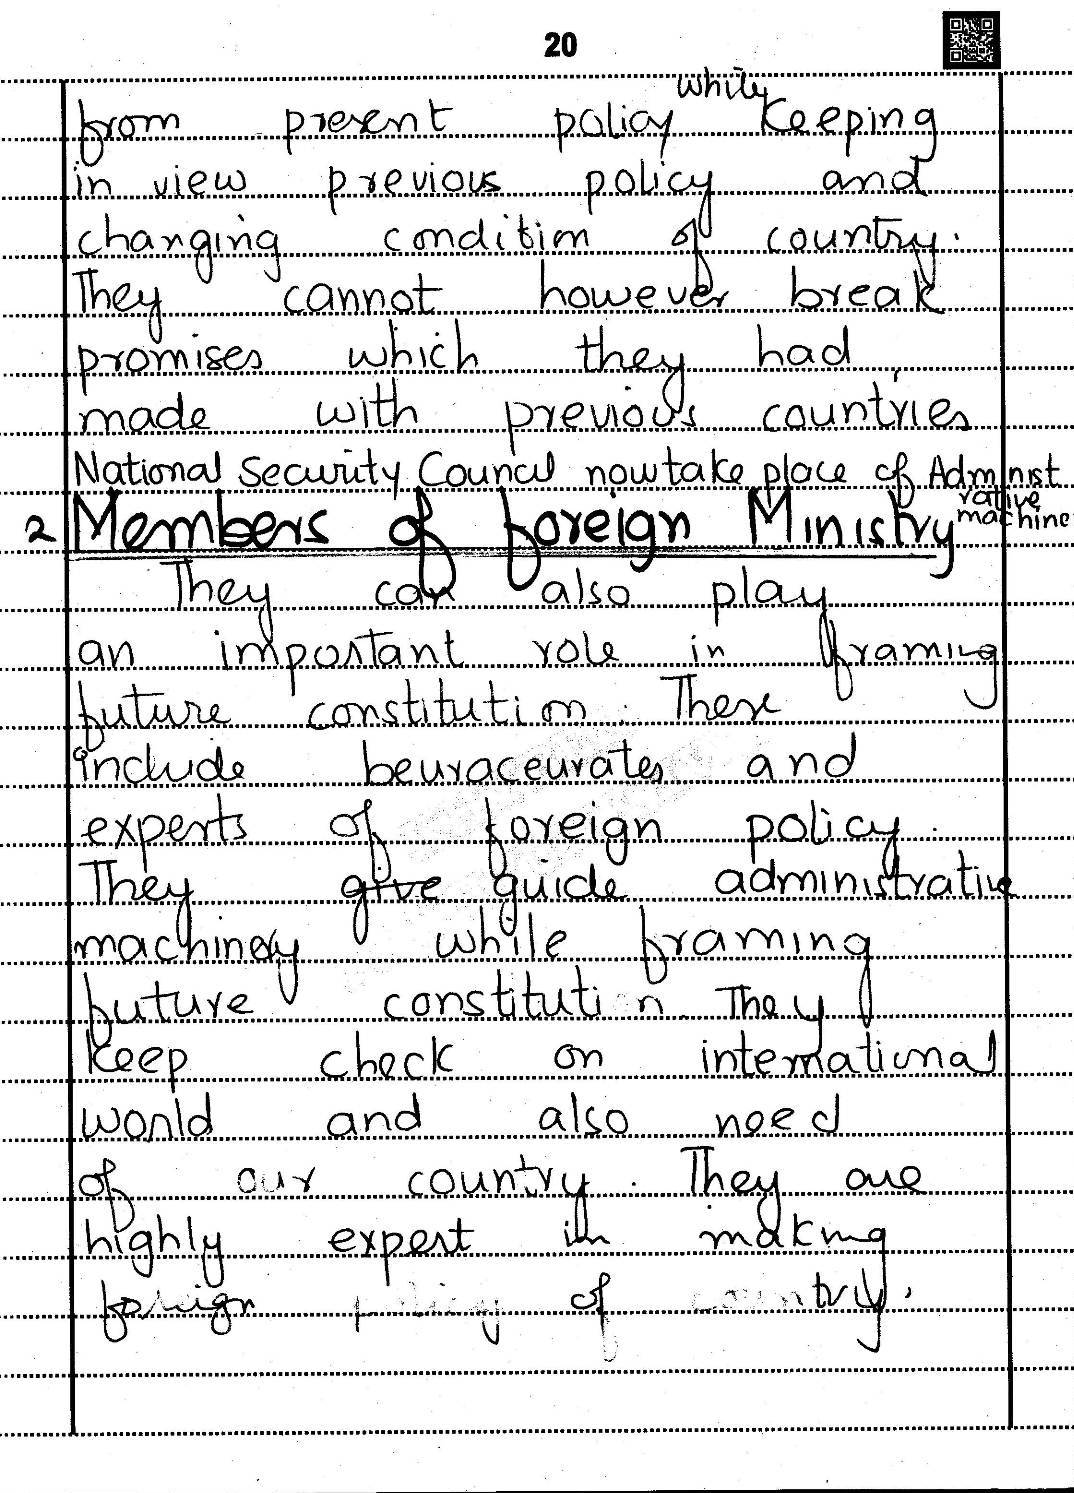 20
while
from present policy Keeping
in view previous policy and
changing condition of country.
They cannot however break
promises which they had
made with previous countries
National Security Council now take place of Administ
rative
machine
2 Members of foreign Ministry
They can also play
an important role in framing
future constitution. These
include beuraceurates and
experts of foreign policy.
They give guide administrative
machinery while framing
future constitution. They
keep check on international
world and also need
of our country. They are
highly expert in making
foreign policy of country.